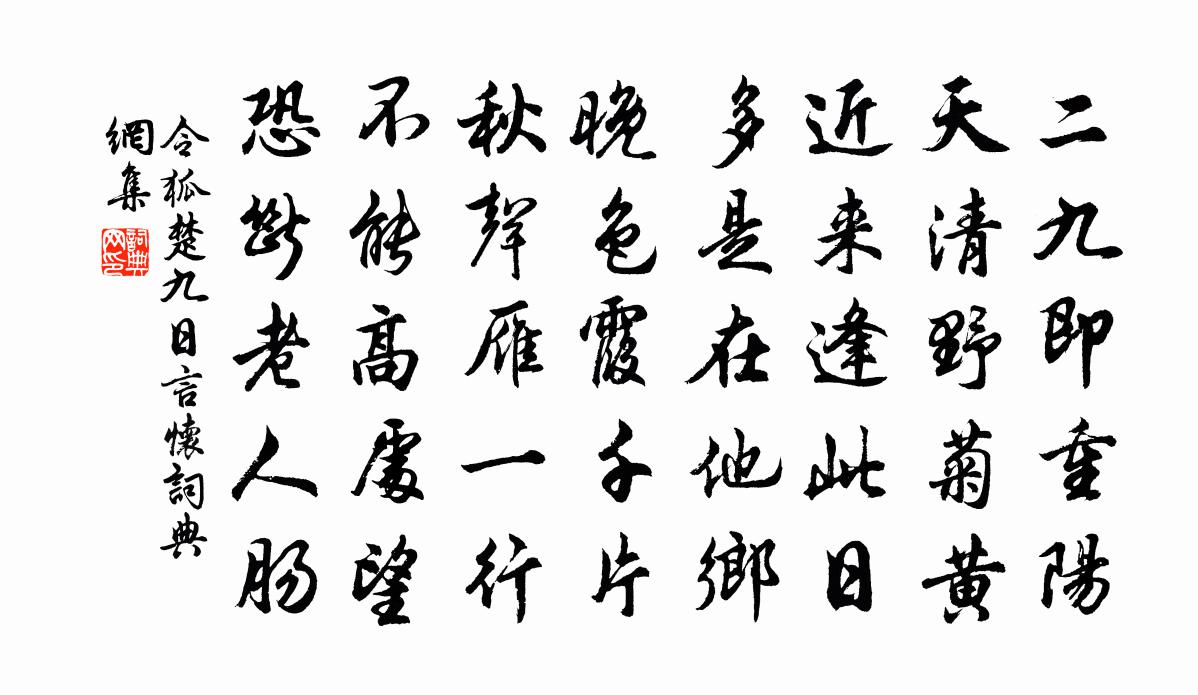 二九即重陽
天清野菊黄
近来逢此日
多是在他鄉
晚色霞千片
秋聲雁一行
不能高處望
恐斷老人腸
令狐楚九日言懷詞典
網集
詞典
网印